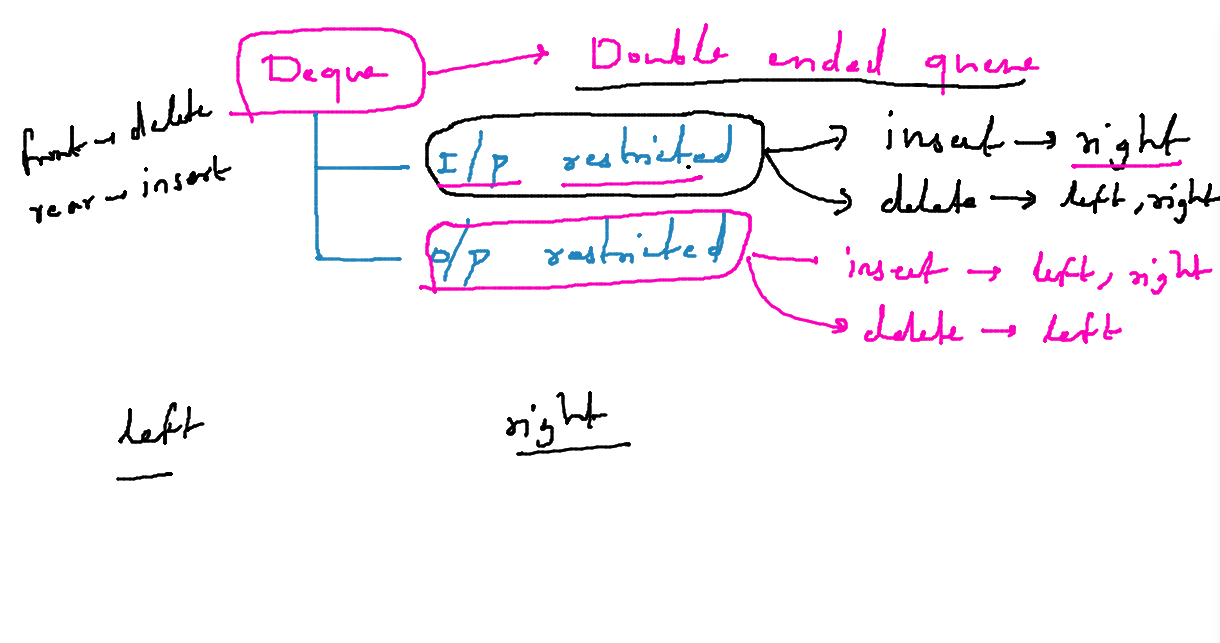 Deque → Double ended queue
front → delete
rear → insert
I/p restricted
insert → right
delete → left, right
O/p restricted
insert → left, right
delete → left
left
right